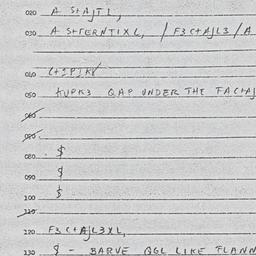 020 A S+AJTI,
030 A S+TERNTIXL, / F3C+AJL3/A
040
050 KUPK3 QAP UNDER THE FAC+AJ
060
070
080 $
090 $
100 $
110
120 F3C+AJL3XL,
130 $ - BARVE QGL LIKE FLANN